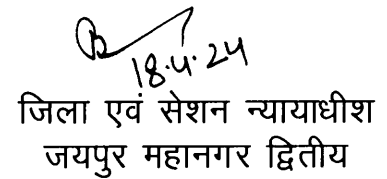 18.4.24
जिला एवं सेशन न्यायाधीश
जयपुर महानगर द्वितीय